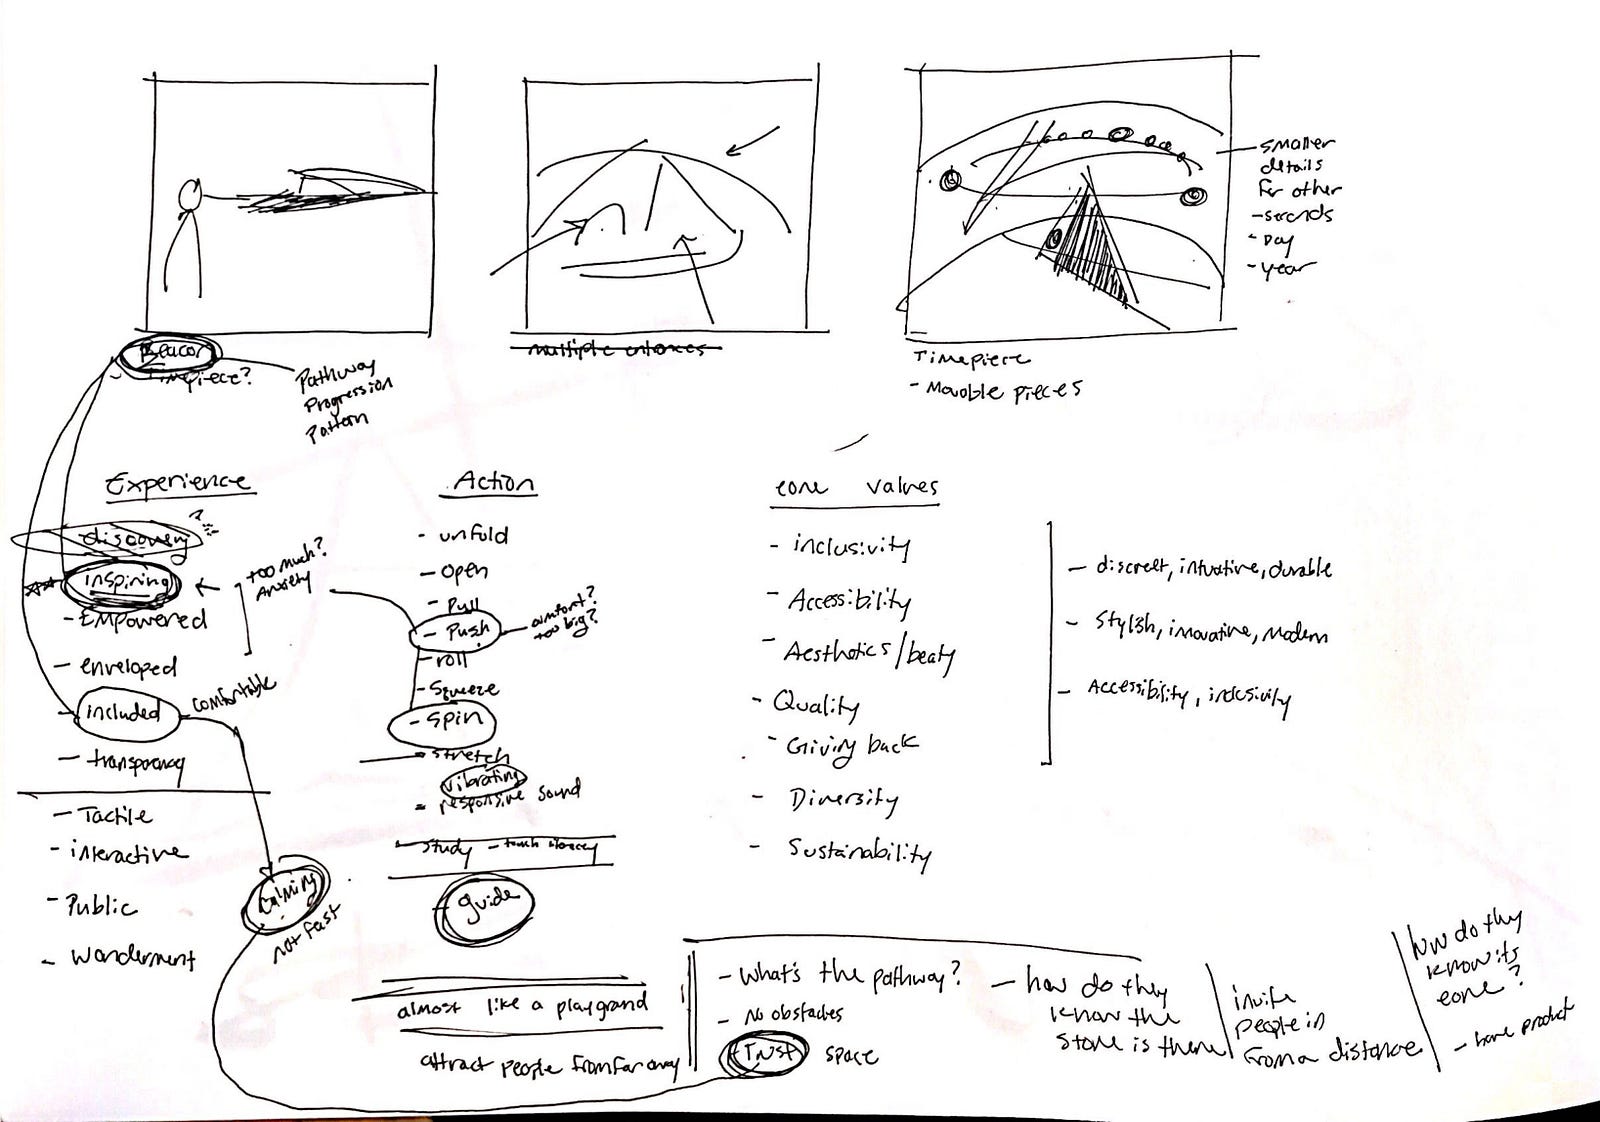 Beacon
Timepiece?
Pathway
Progression
Pattern
multiple entances
Timepiece
- Movable pieces
smaller
details
for other
- seconds
- Day
- year
Experience
discovery ?
inspiring
- Empowered
- enveloped
included
- transparency
- Tactile
- interactive
- Public
- wonderment
too much?
Anxiety
comfortable
calming
not fast
Action
- unfold
- open
- Pull
- Push
- roll
- Squeeze
- spin
- stretch
vibrating
- responsive sound
study - touch
guide
comfort?
too big?
almost like a playgrand
attract people from far away
eone values
- inclusivity
- Accessibility
- Aesthetics/beaty
- Quality
- Giving back
- Diversity
- Sustainability
- discreet, intuative, durable
- Stylish, inovative, modern
- Accessibility, inclusivity
- What's the pathway?
- No obstacles
- Trust space
- how do they
know the
store is there
invite
people in
from a distance
how do they
know its
eone?
- have product